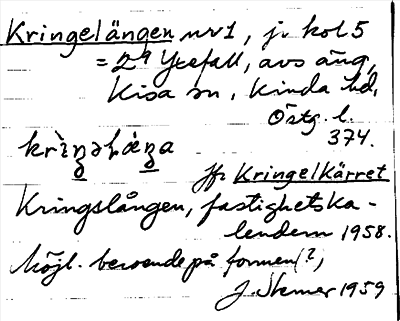 Kringelängen nr 1, jr kol 5
= 2⁹ Yxefall, avs äng,
Kisa sn, Kinda hd,
Östg. l.
374.
jfr Kringelkärret
Kringslången, fastighetska-
lendern 1958.
Möjl. beroende på formen (?),
J. Skmer 1959